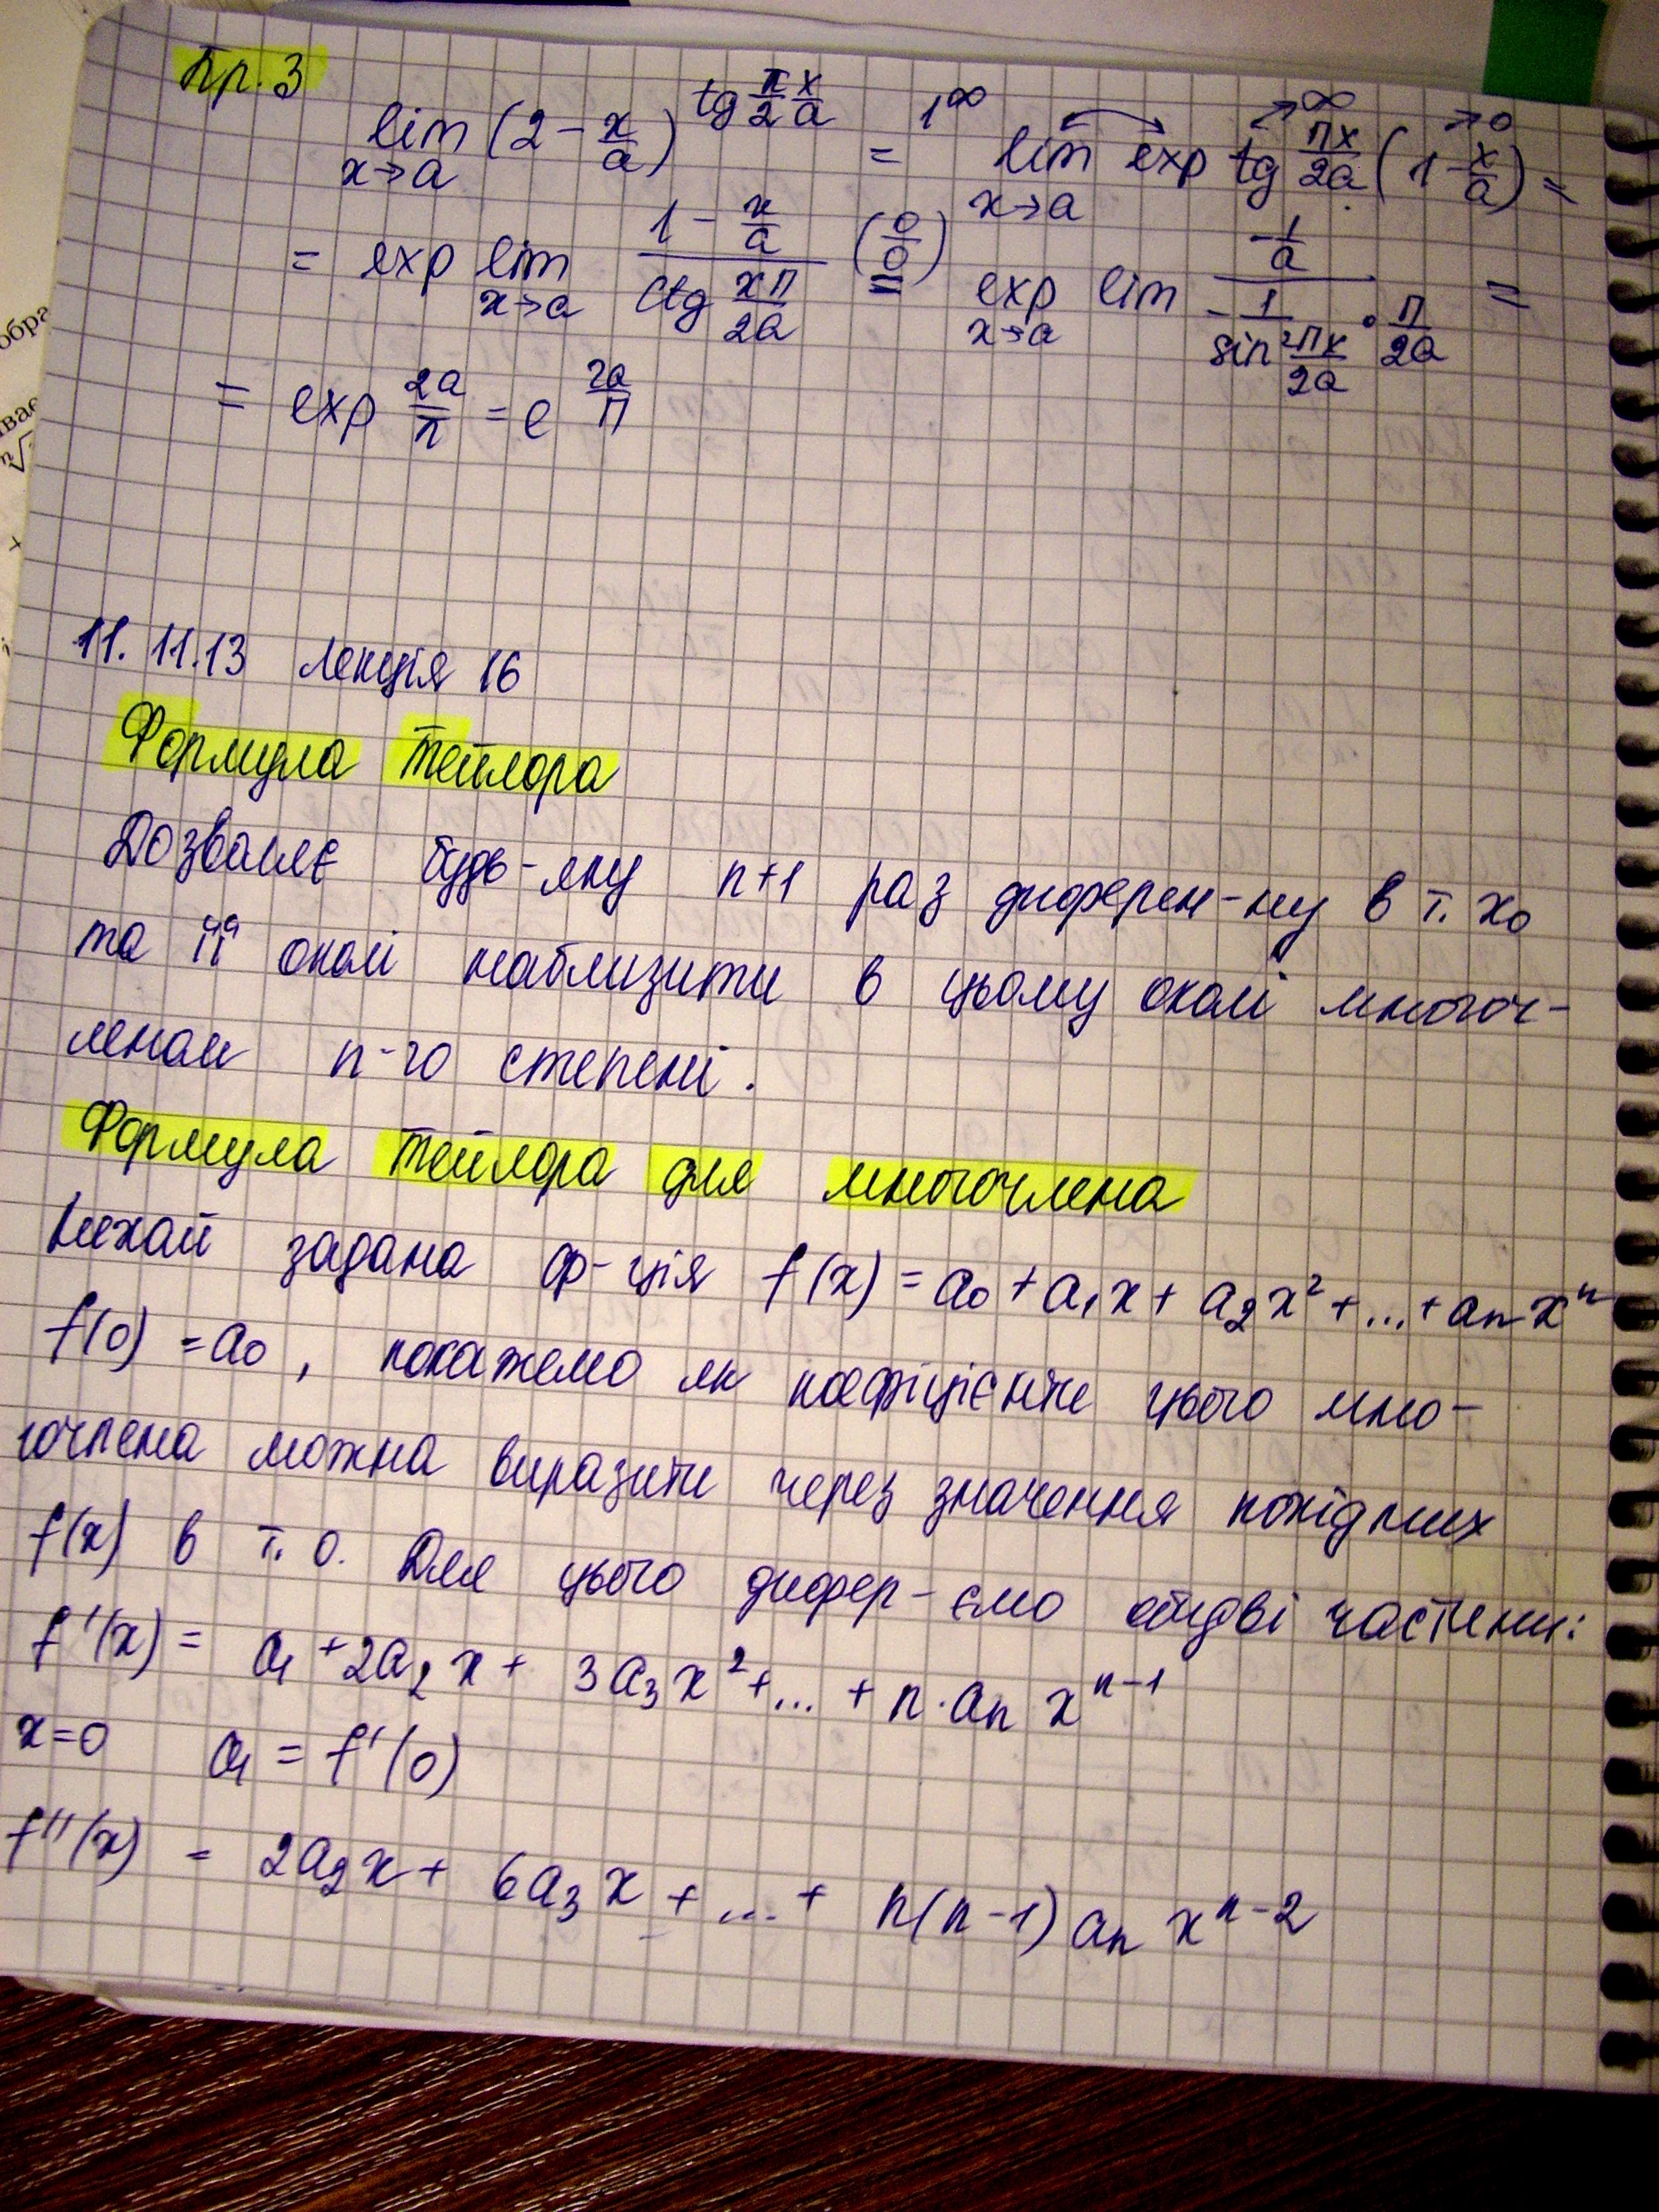 Пр. 3
lim (2 - x/a)^(tg π/2 x/a) = 1^∞ lim exp tg πx/2a (1 - x/a) =
x→a x→a →∞ →0
= exp lim (1 - x/a)/(ctg xπ/2a) (0/0) = exp lim (-1/a)/(-1/(sin² πx/2a) · π/2a) =
x→a x→a
= exp 2a/π = e^(2a/π)
11.11.13 Лекція 16
Формула Тейлора
Дозволяє будь-яку n+1 раз диферен-ну в т. x₀
та її околі наблизити в цьому околі многоч-
леном n-го степені.
Формула Тейлора для многочлена
Нехай задана ф-ція f(x) = a₀ + a₁x + a₂x² + ... + aₙxⁿ
f(0) = a₀, покажемо як коефіцієнти цього мно-
гочлена можна виразити через значення похідних
f(x) в т. 0. Для цього дифер-ємо обидві частини:
f'(x) = a₁ + 2a₂x + 3a₃x² + ... + n·aₙ xⁿ⁻¹
x=0 a₁ = f'(0)
f''(x) = 2a₂x + 6a₃x + ... + n(n-1)aₙ xⁿ⁻²
обра